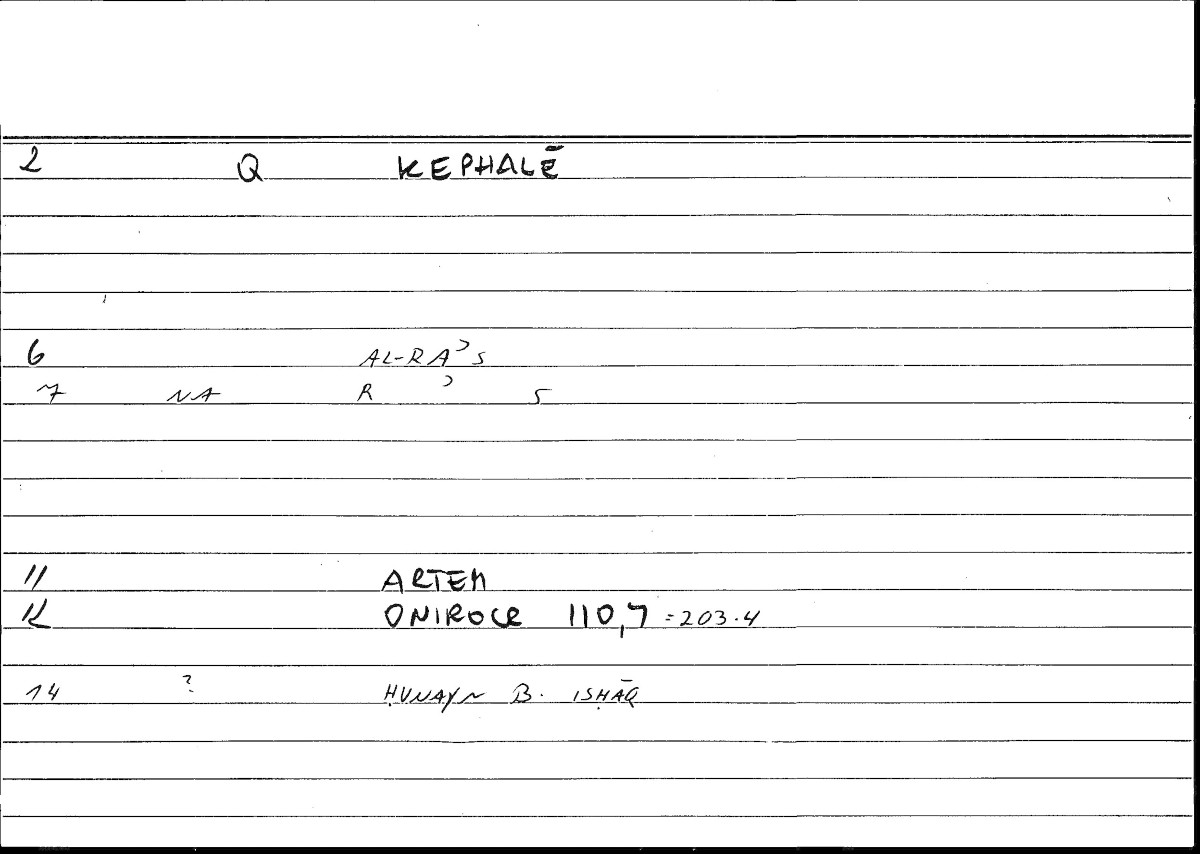 2 Q KEPHALĒ
6 AL-RAʾS
7 NA R ʾ S
11 ARTEM
12 ONIROCR 110,7 = 203.4
14 ? ḤUNAYN B. ISḤĀQ